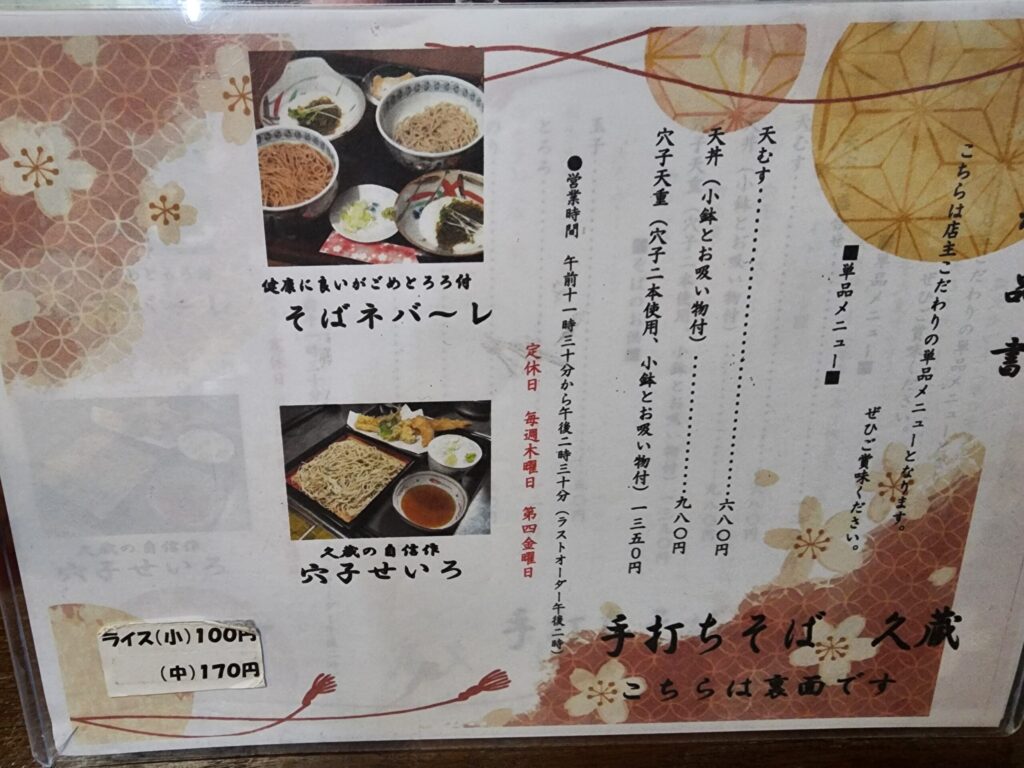 品書
こちらは店主こだわりの単品メニューとなります。
ぜひご賞味ください。
■単品メニュー■
天むす・・・・・・・・・・・・・・・・・・・・六八〇円
天丼（小鉢とお吸い物付）・・・・・・・・・・・・九八〇円
穴子天重（穴子二本使用、小鉢とお吸い物付）一三五〇円
●営業時間　午前十一時三十分から午後二時三十分（ラストオーダー午後二時）
定休日　毎週木曜日　第四金曜日
健康に良いがごめとろろ付
そばネバ～レ
久蔵の自信作
穴子せいろ
ライス(小)100円
(中)170円
手打ちそば　久蔵
こちらは裏面です